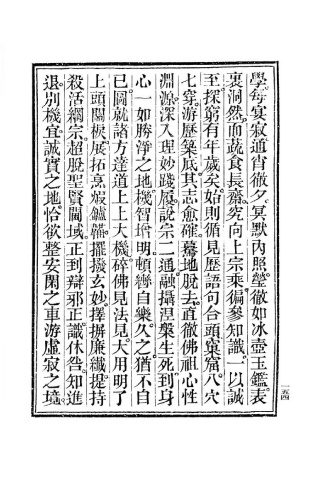 學每宴寂通宵徹夕冥默內照瑩徹如冰壺玉鑑表
裏洞然而蔬食長齋究向上宗乘徧參知識一以誠
至探窮有年歲矣始則循見歷語句合頭窠窟八穴
七穿游歷築底其志愈確驀地脫去直徹佛祖心性
淵源深入理妙踐履說宗二通融攝涅槃生死到身
心一如勝淨之地機智增明頓轡自樂久之猶不自
已圖就諸方達道上上大機碎佛見法見大用明了
上頭關棙展拓烹煆鑪鞴擺撥玄妙擇摒廉纖提持
殺活綱宗超脫聖賢閫域正到辯邪正識休咎知進
退別機宜誠實之地恰欲整安閑之車游虛寂之境
一五四